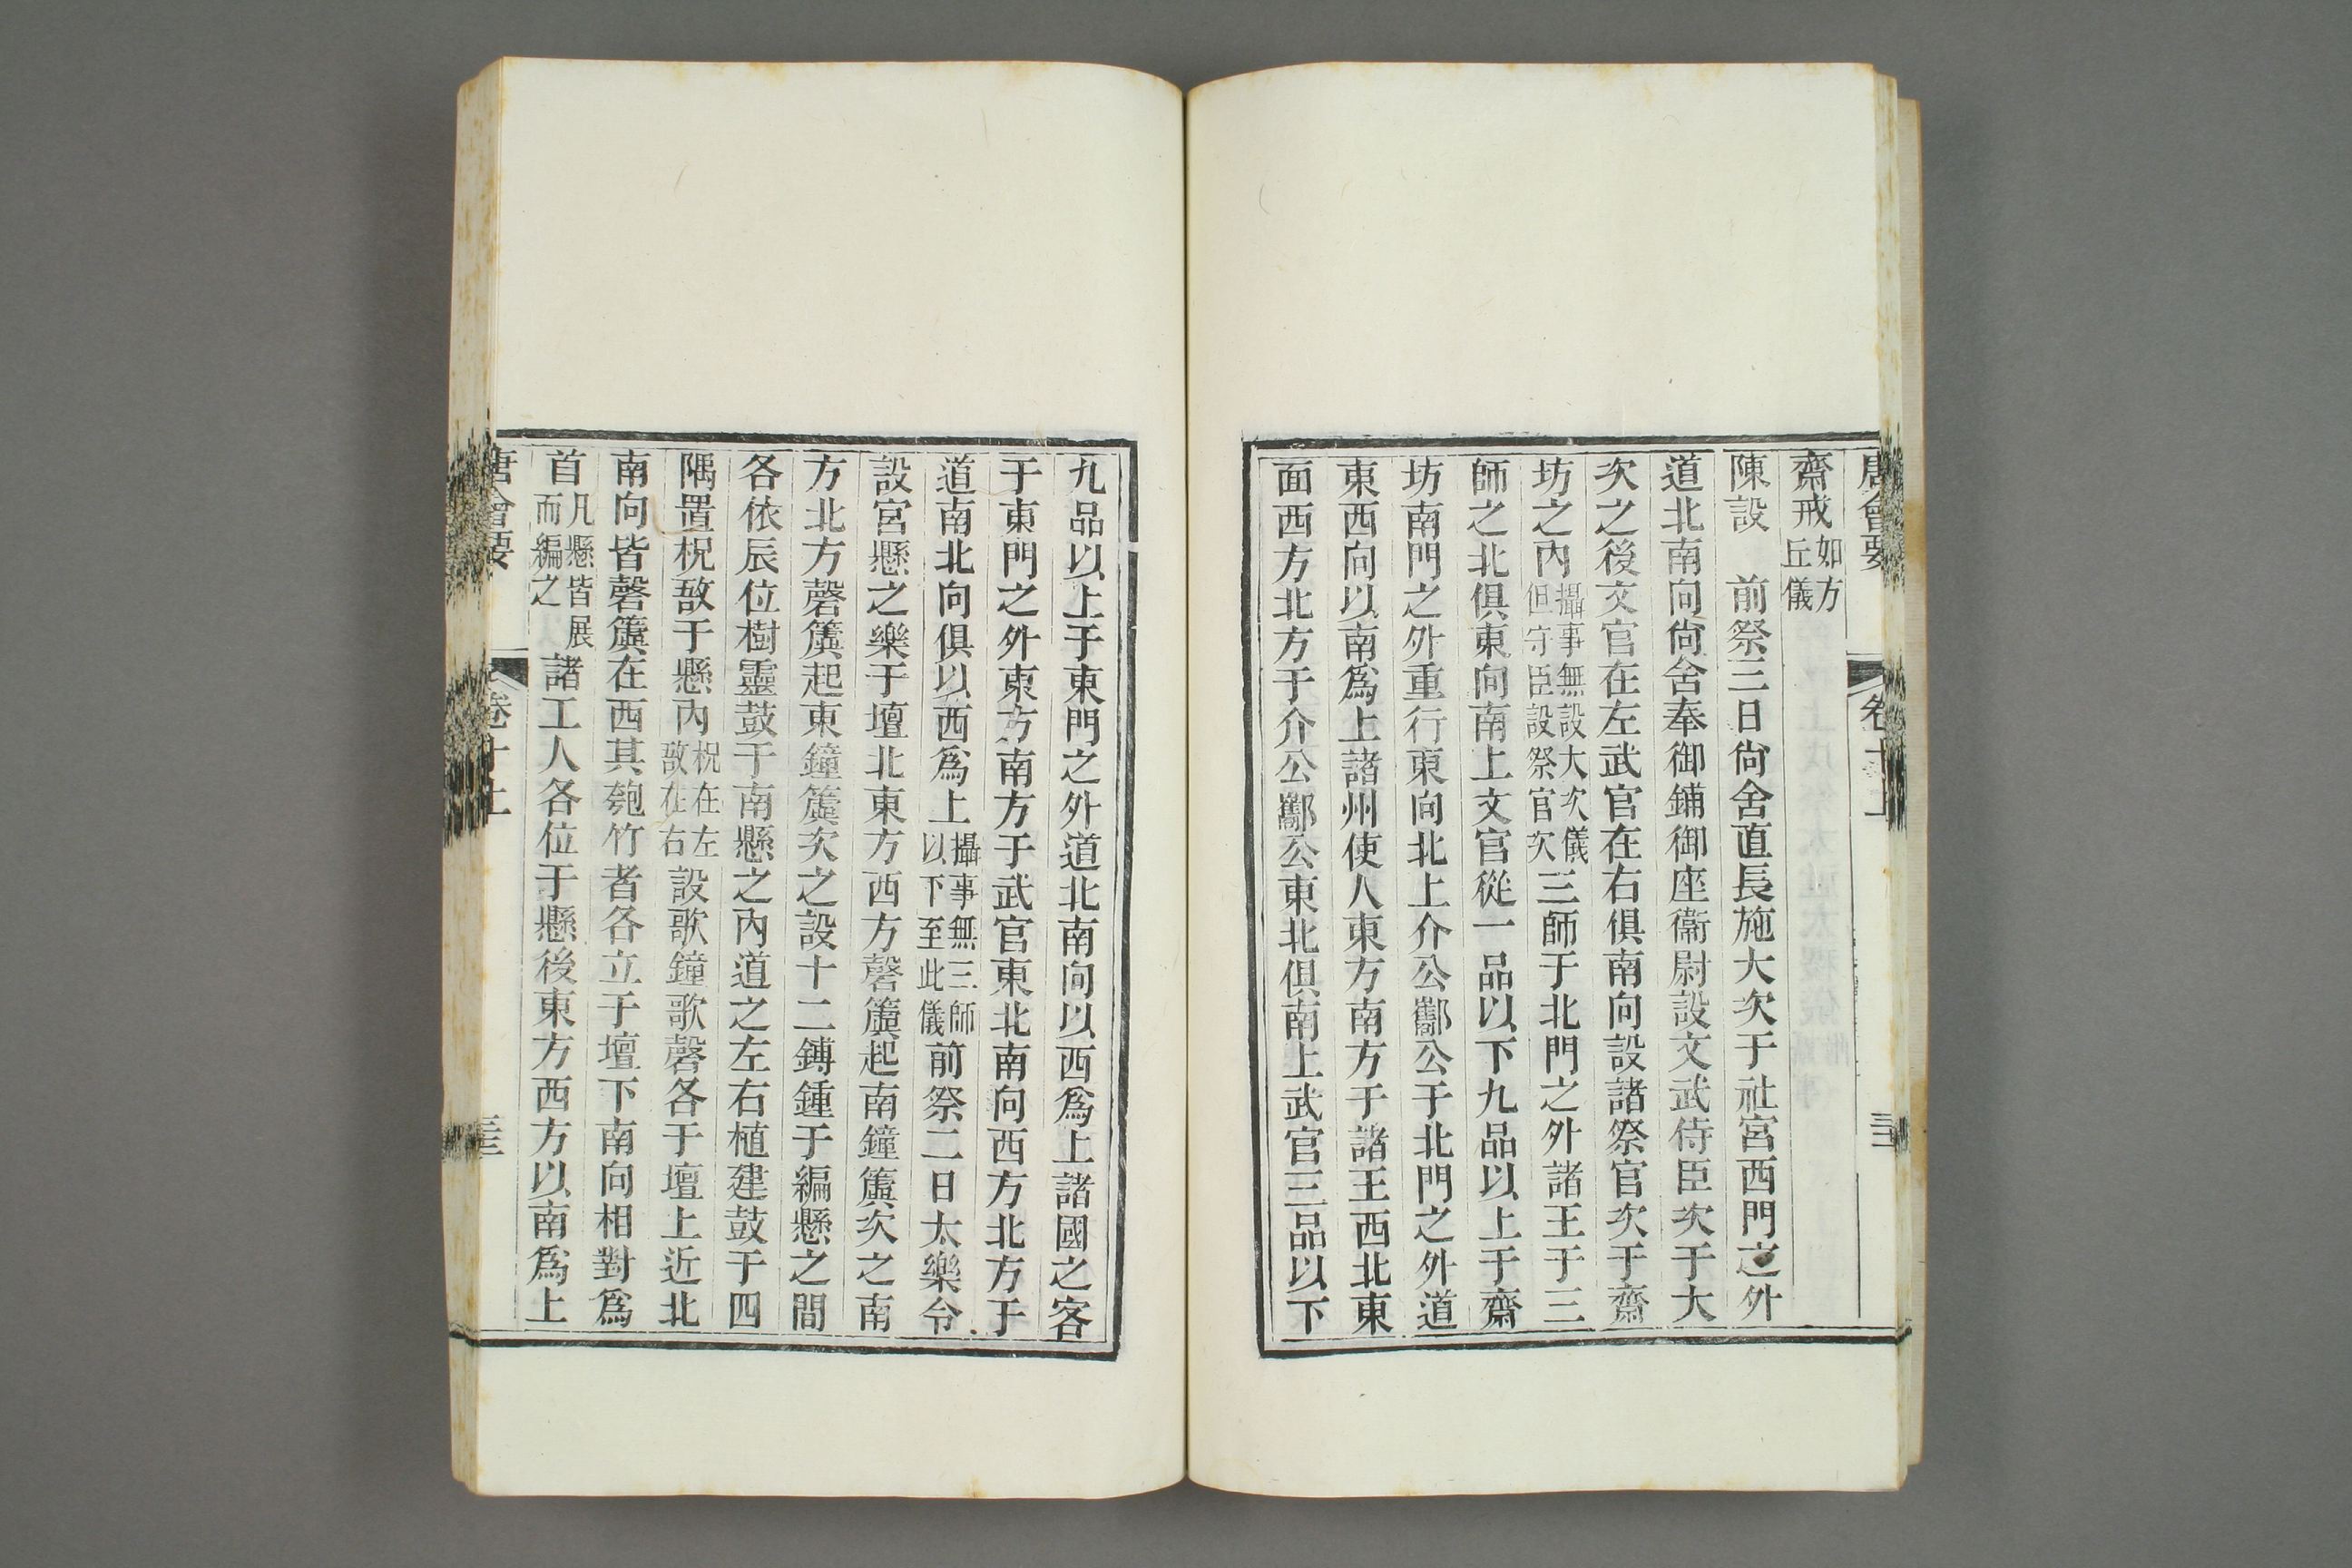 唐會要 卷十上
齋戒如方丘儀
陳設　前祭三日尙舍直長施大次于社宮西門之外
道北南向尙舍奉御鋪御座衞尉設文武侍臣次于大
次之後文官在左武官在右俱南向設諸祭官次于齋
坊之內攝事無設大次儀但守臣設祭官次三師于北門之外諸王于三
師之北俱東向南上文官從一品以下九品以上于齋
坊南門之外重行東向北上介公酅公于北門之外道
東西向以南爲上諸州使人東方南方于諸王西北東
面西方北方于介公酅公東北俱南上武官三品以下
九品以上于東門之外道北南向以西爲上諸國之客
于東門之外東方南方于武官東北南向西方北方于
道南北向俱以西爲上攝事無三師以下至此儀前祭二日太樂令
設宮懸之樂于壇北東方西方磬簴起南鐘簴次之南
方北方磬簴起東鐘簴次之設十二鎛鍾于編懸之間
各依辰位樹靈鼓于南懸之內道之左右植建鼓于四
隅置柷敔于懸內柷在左敔在右設歌鐘歌磬各于壇上近北
南向皆磬簴在西其匏竹者各立于壇下南向相對爲
首凡懸皆展而編之諸工人各位于懸後東方西方以南爲上
唐會要 卷十上